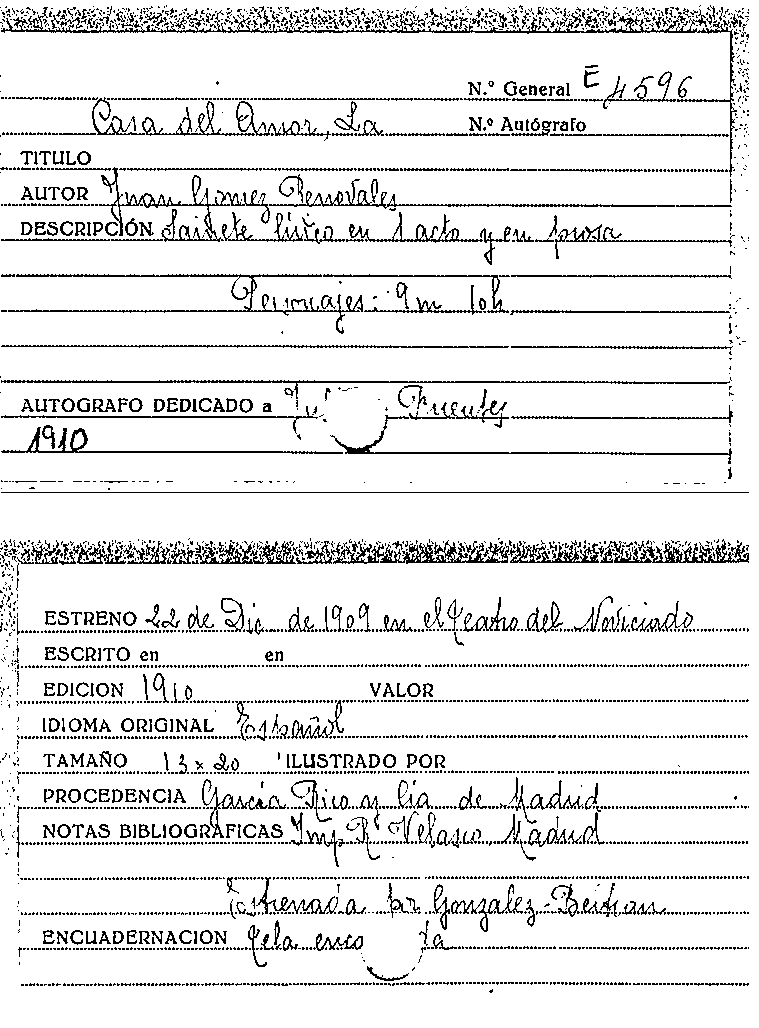 N.º General E 4596
Casa del Amor, La N.º Autógrafo
TITULO
AUTOR Juan Gomez Renovales
DESCRIPCIÓN Sainete lírico en 1 acto y en prosa
Personajes: 9m 10h.
AUTOGRAFO DEDICADO a Fuentes
1910
ESTRENO 22 de Dic de 1909 en el Teatro del Noviciado
ESCRITO en en
EDICION 1910 VALOR
IDIOMA ORIGINAL Español
TAMAÑO 13 x 20 ILUSTRADO POR
PROCEDENCIA García Rico y Cía de Madrid
NOTAS BIBLIOGRAFICAS Imp R. Velasco, Madrid
Estrenada por Gonzalez-Beltran
ENCUADERNACION Tela